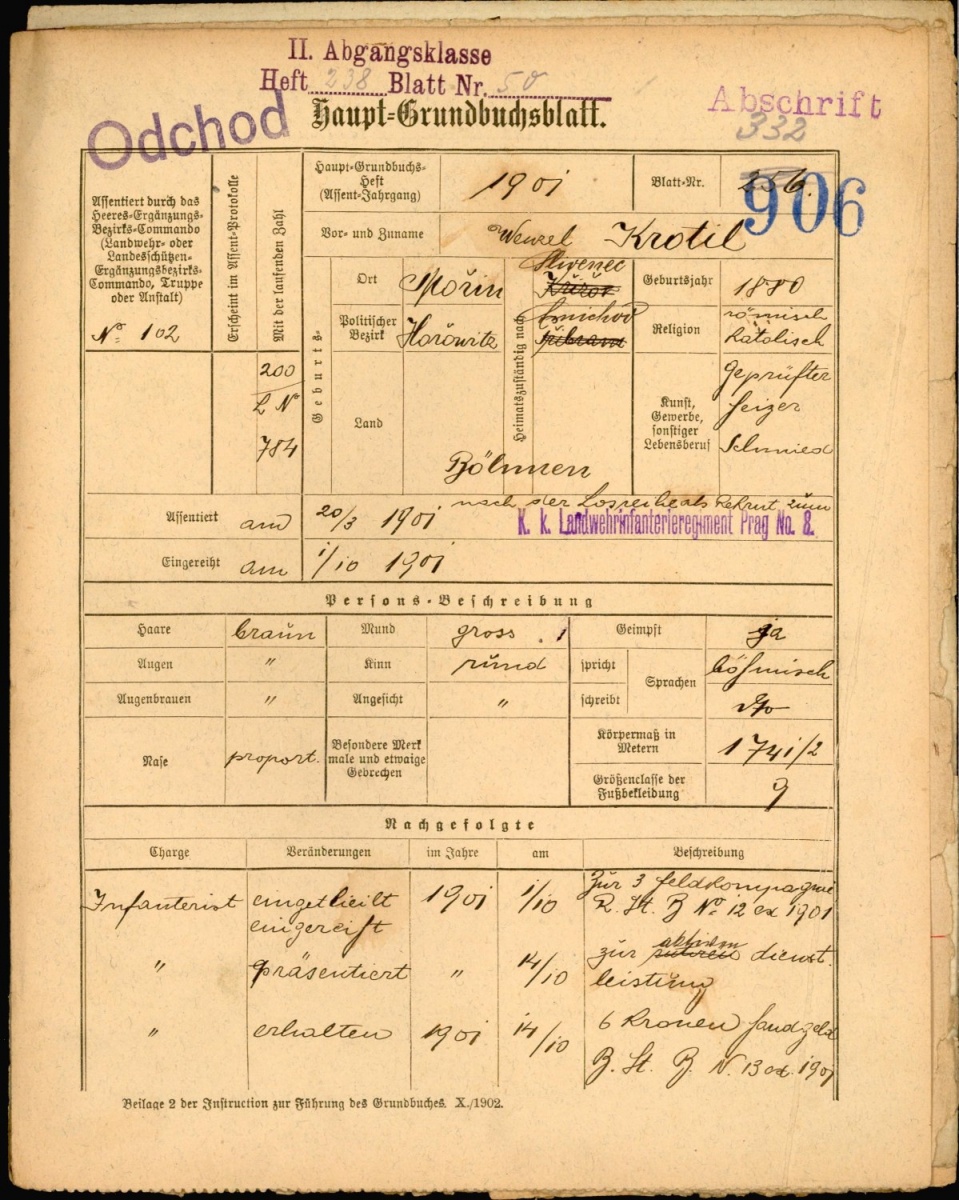 II. Abgangsklasse
Heft 238 Blatt Nr. 50
Odchod
Haupt-Grundbuchsblatt.
Abschrift
332
Assentiert durch das
Heeres-Ergänzungs-
Bezirks-Commando
(Landwehr- oder
Landesschützen-
Ergänzungsbezirks-
Commando, Truppe
oder Anstalt)
No 102
Erscheint im Assent-Protokolle
Mit der laufenden Zahl
200
L No
784
Haupt-Grundbuchs-
Heft
(Assent-Jahrgang)
1901
Blatt-Nr.
256.
906
Vor- und Zuname
Wenzel Krotil
Geburts-
Ort
Mořin
Politischer
Bezirk
Hořowitz
Land
Böhmen
Heimatszuständig nach
Slivenec
Smichov
Přibram
Geburtsjahr
1880
Religion
römisch
katolisch
Kunst,
Gewerbe,
sonstiger
Lebensberuf
geprüfter
Heizer
Schmied
Assentiert am 20/3 1901
nach der Losreihe als Rekrut zum
K. k. Landwehrinfanterieregiment Prag No. 8.
Eingereiht am 1/10 1901
Persons-Beschreibung
Haare braun
Mund gross
Geimpft ja
Augen "
Kinn rund
spricht
Sprachen
böhmisch
Augenbrauen "
Angesicht "
schreibt
dto
Nase proport.
Besondere Merk
male und etwaige
Gebrechen
Körpermaß in
Metern
1 74 1/2
Größenclasse der
Fußbekleidung
9
Nachgefolgte
Charge Veränderungen im Jahre am Beschreibung
Infanterist eingetheilt 1901 1/10 Zur 3 Feldkompagnie
eingereift R. St. B No 12 ex 1901
" präsentiert " 14/10 zur aktiven dienst.
leistung
" erhalten 1901 14/10 6 Kronen Handgeld
B. St. B. N. 13 ex. 1901
Beilage 2 der Instruction zur Führung des Grundbuches. X./1902.